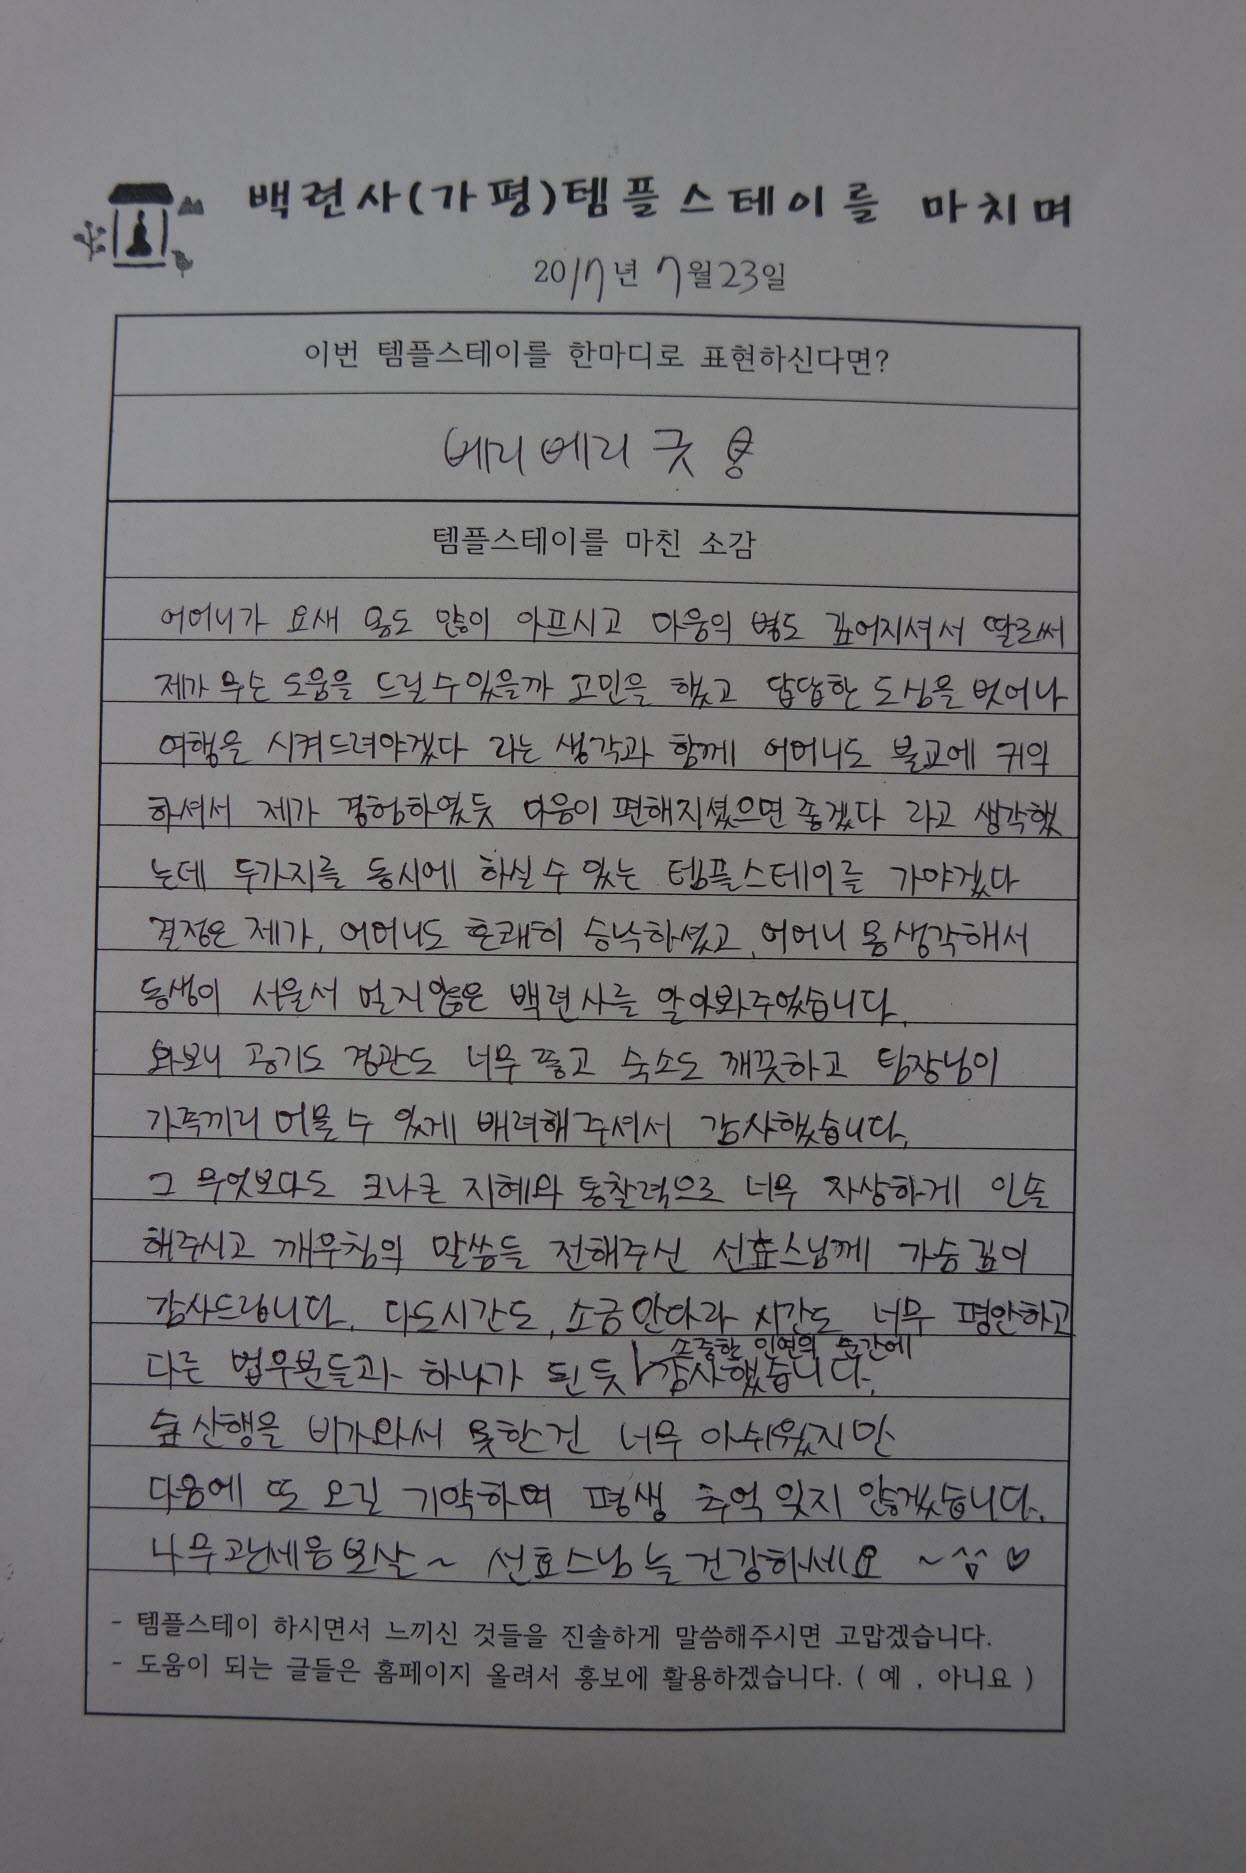 백련사(가평)템플스테이를 마치며
2017년 7월23일
이번 템플스테이를 한마디로 표현하신다면?
베리베리 굿
템플스테이를 마친 소감
어머니가 요새 몸도 많이 아프시고 마음의 병도 깊어지셔서 딸로써
제가 무슨 도움을 드릴수있을까 고민을 했고 답답한 도심을 벗어나
여행을 시켜드려야겠다 라는 생각과 함께 어머니도 불교에 귀의
하셔서 제가 경험하였듯 마음이 편해지셨으면 좋겠다 라고 생각했
는데 두가지를 동시에 하실수 있는 템플스테이를 가야겠다
결정은 제가, 어머니도 흔쾌히 승낙하셨고, 어머니 몸생각해서
동생이 서울서 멀지않은 백련사를 알아봐주었습니다.
와보니 공기도 경관도 너무 좋고 숙소도 깨끗하고 팀장님이
가족끼리 머물 수 있게 배려해주셔서 감사했습니다.
그 무엇보다도 크나큰 지혜와 통찰력으로 너무 자상하게 인솔
해주시고 깨우침의 말씀들 전해주신 선효스님께 가슴깊이
감사드립니다. 다도시간도, 소금만다라 시간도 너무 평안하고
소중한 인연의 순간에
다른 법우분들과 하나가 된듯 감사했습니다.
숲산행을 비가와서 못한건 너무 아쉬웠지만
다음에 또 오길 기약하며 평생 추억 잊지 않겠습니다.
나무관세음보살~ 선효스님 늘건강하세요 ~^^ ♡
- 템플스테이 하시면서 느끼신 것들을 진솔하게 말씀해주시면 고맙겠습니다.
- 도움이 되는 글들은 홈페이지 올려서 홍보에 활용하겠습니다. ( 예 , 아니요 )